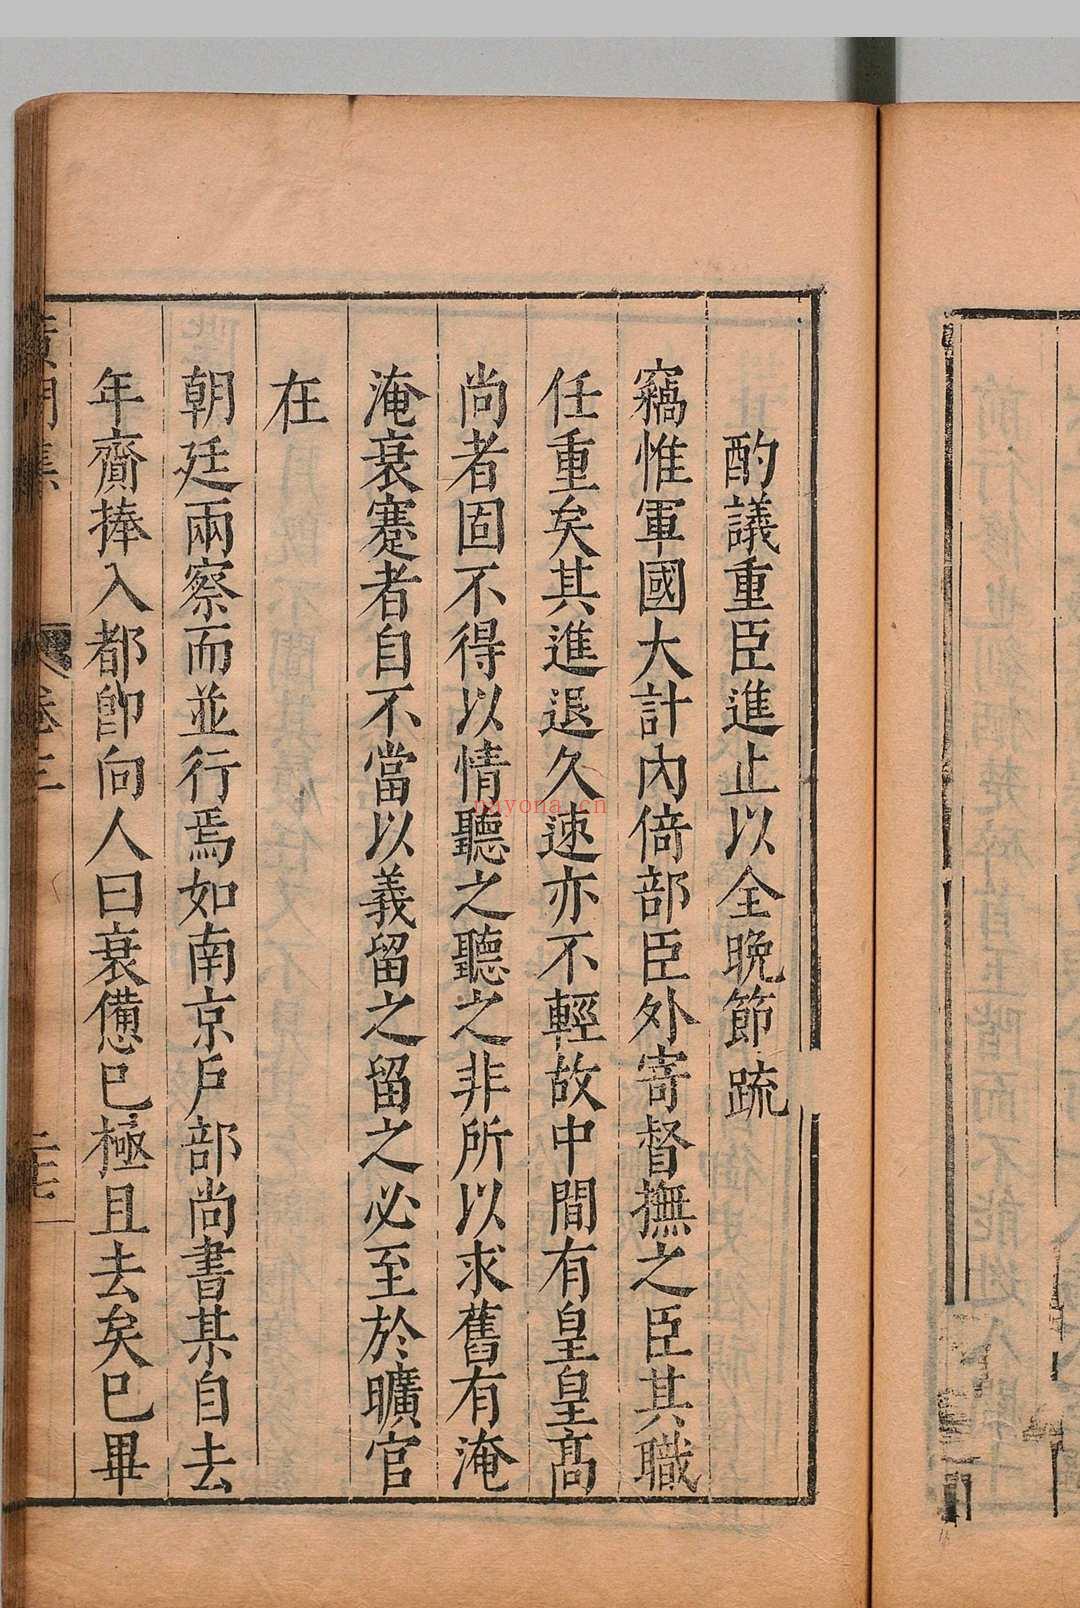 酌議重臣進止以全晚節疏
竊惟軍國大計內倚部臣外寄督撫之臣其職
任重矣其進退久速亦不輕故中間有皇皇高
尚者固不得以情聽之聽之非所以求舊有淹
淹衰蹇者自不當以義留之留之必至於曠官
在
朝廷兩察而並行焉如南京戶部尚書某自去
年齎捧入都卽向人曰衰憊已極且去矣已畢
卷三